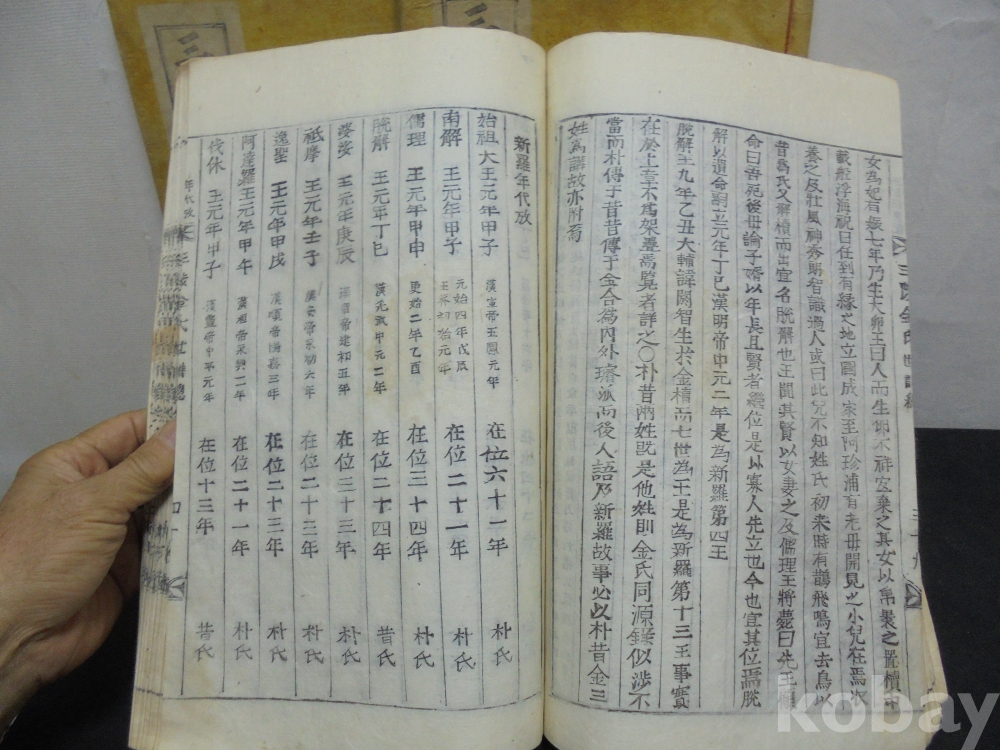 女為妃有娠七年乃生大卵王曰人而生卵不祥宜棄之其女以帛裹之置櫝中
載般浮海祝曰任到有緣之地立國成家至阿珍浦有老母開見之小兒在焉收
養之及壯風神秀明智識過人或曰此兒不知姓氏初來時有鵲飛鳴宜去鳥以
昔爲氏又解櫝而出宜名脫解也王聞其賢以女妻之及儒理王將薨曰先王顧
命曰吾死後毋論子婿以年長且賢者繼位是以寡人先立也今也宜其位焉脫
解以遺命嗣立元年丁巳漢明帝中元二年是為新羅第四王
脫解王九年乙丑大輔諱閼智生於金櫝而七世為王是為新羅第十三王事實
在於上章不為架疊焉覽者詳之〇朴昔兩姓旣是他姓則金氏同源錄似涉不
當而朴傳于昔昔傳于金合為內外璿派而後人語及新羅故事必以朴昔金三
姓為講故亦附焉
新羅年代攷
始祖大王元年甲子 漢宣帝五鳳元年 在位六十一年 朴氏
南解 王元年甲子 元始四年戊辰 王莽初始元年 在位二十一年 朴氏
儒理 王元年甲申 更始二年乙酉 在位三十四年 朴氏
脫解 王元年丁巳 漢光武中元二年 在位二十四年 昔氏
婆娑 王元年庚辰 漢章帝建初五年 在位三十三年 朴氏
祗摩 王元年壬子 漢安帝永初六年 在位二十三年 朴氏
逸聖 王元年甲戌 漢順帝陽嘉三年 在位二十三年 朴氏
阿達羅 王元年甲午 漢桓帝永興二年 在位二十一年 朴氏
伐休 王元年甲子 漢靈帝中平元年 在位十三年 昔氏
年代攷
三
kobay